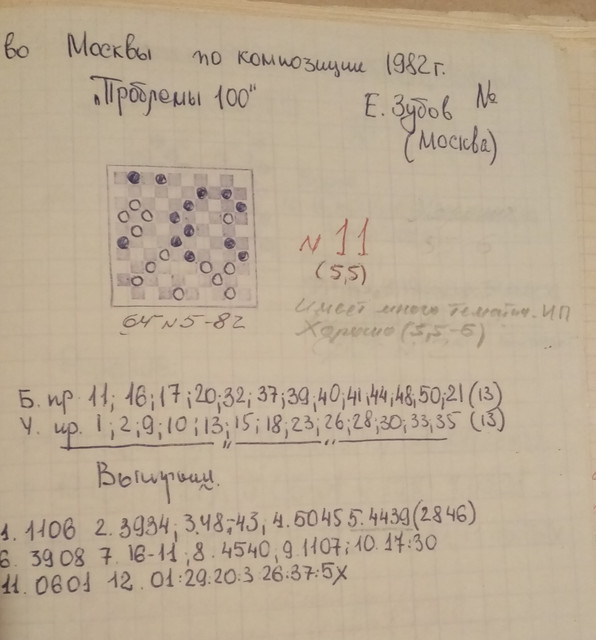 во Москвы по композиции 1982г.
"Проблемы 100"
Е. Зубов №
(Москва)
№ 11
(5,5)
64 №5-82
Имеет много тематич. ИП
Хорошо (5,5-6)
Б. пр 11; 16; 17; 20; 32; 37; 39; 40; 41; 44; 48; 50; 21 (13)
Ч. пр. 1; 2; 9; 10; 13; 15; 18; 23; 26; 28; 30; 33; 35 (13)
Выигрыш.
1. 1106 2. 3934; 3.48-43, 4. 5045 5. 4439 (2846)
6. 3908 7. 16-11; 8. 4540, 9. 1107; 10. 17:30
11. 0601 12. 01:29:20:3 26:37:5X